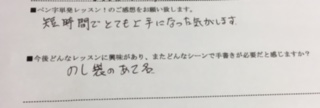 ■ペン字単発レッスン!のご感想をお願い致します。
短時間でとても上手になった気がします
■今後どんなレッスンに興味があり、またどんなシーンで手書きが必要だと感じますか?
のし袋のあて名